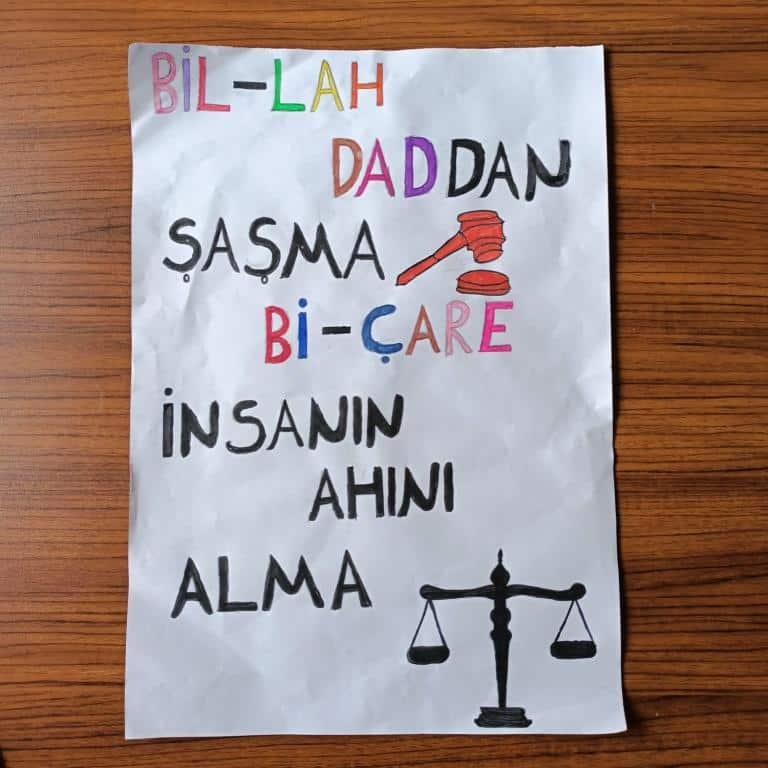 BİL-LAH
DADDAN
ŞAŞMA
Bİ-ÇARE
İNSANIN
AHINI
ALMA